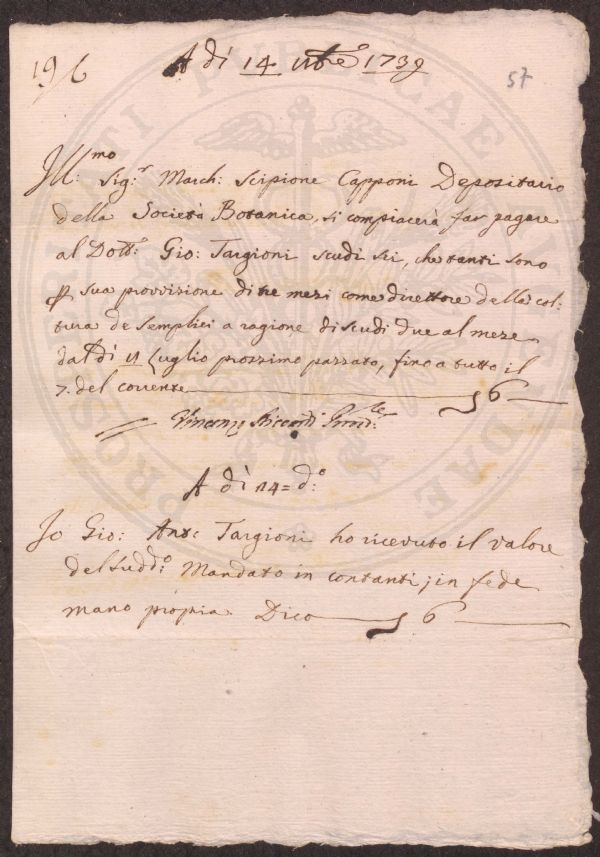 196
A dì 14 8bre 1739
57
Ill:mo Sig:r March: Scipione Capponi Depositario
della Società Botanica, si compiacerà far pagare
al Dott:r Gio: Targioni scudi sei, che tanti sono
p sua provvisione di tre mesi come direttore della col:
tura de Semplici a ragione di scudi due al mese
dal dì 11 Luglio prossimo passato, fino a tutto il
7. del corrente 6
A dì 14 = d:o
Io Gio: Ant: Targioni ho ricevuto il valore
del sudd:o Mandato in contanti, in fede
mano propria Dico 6
PROSPERITATI PUBLICAE